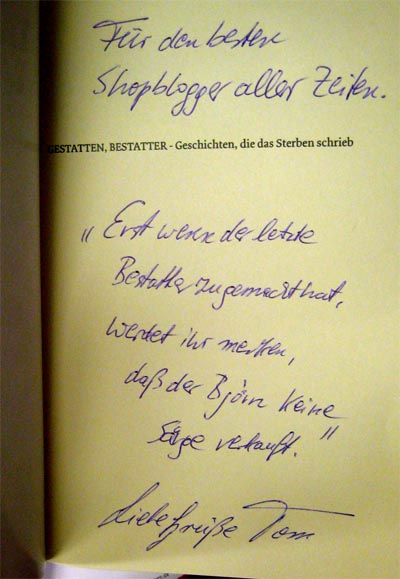 Für den besten
Shopblogger aller Zeiten.
GESTATTEN, BESTATTER - Geschichten, die das Sterben schrieb
„Erst wenn der letzte
Bestatter zugemacht hat,
werdet ihr merken,
daß der Björn keine
Särge verkauft.”
Liebe Grüße Tom